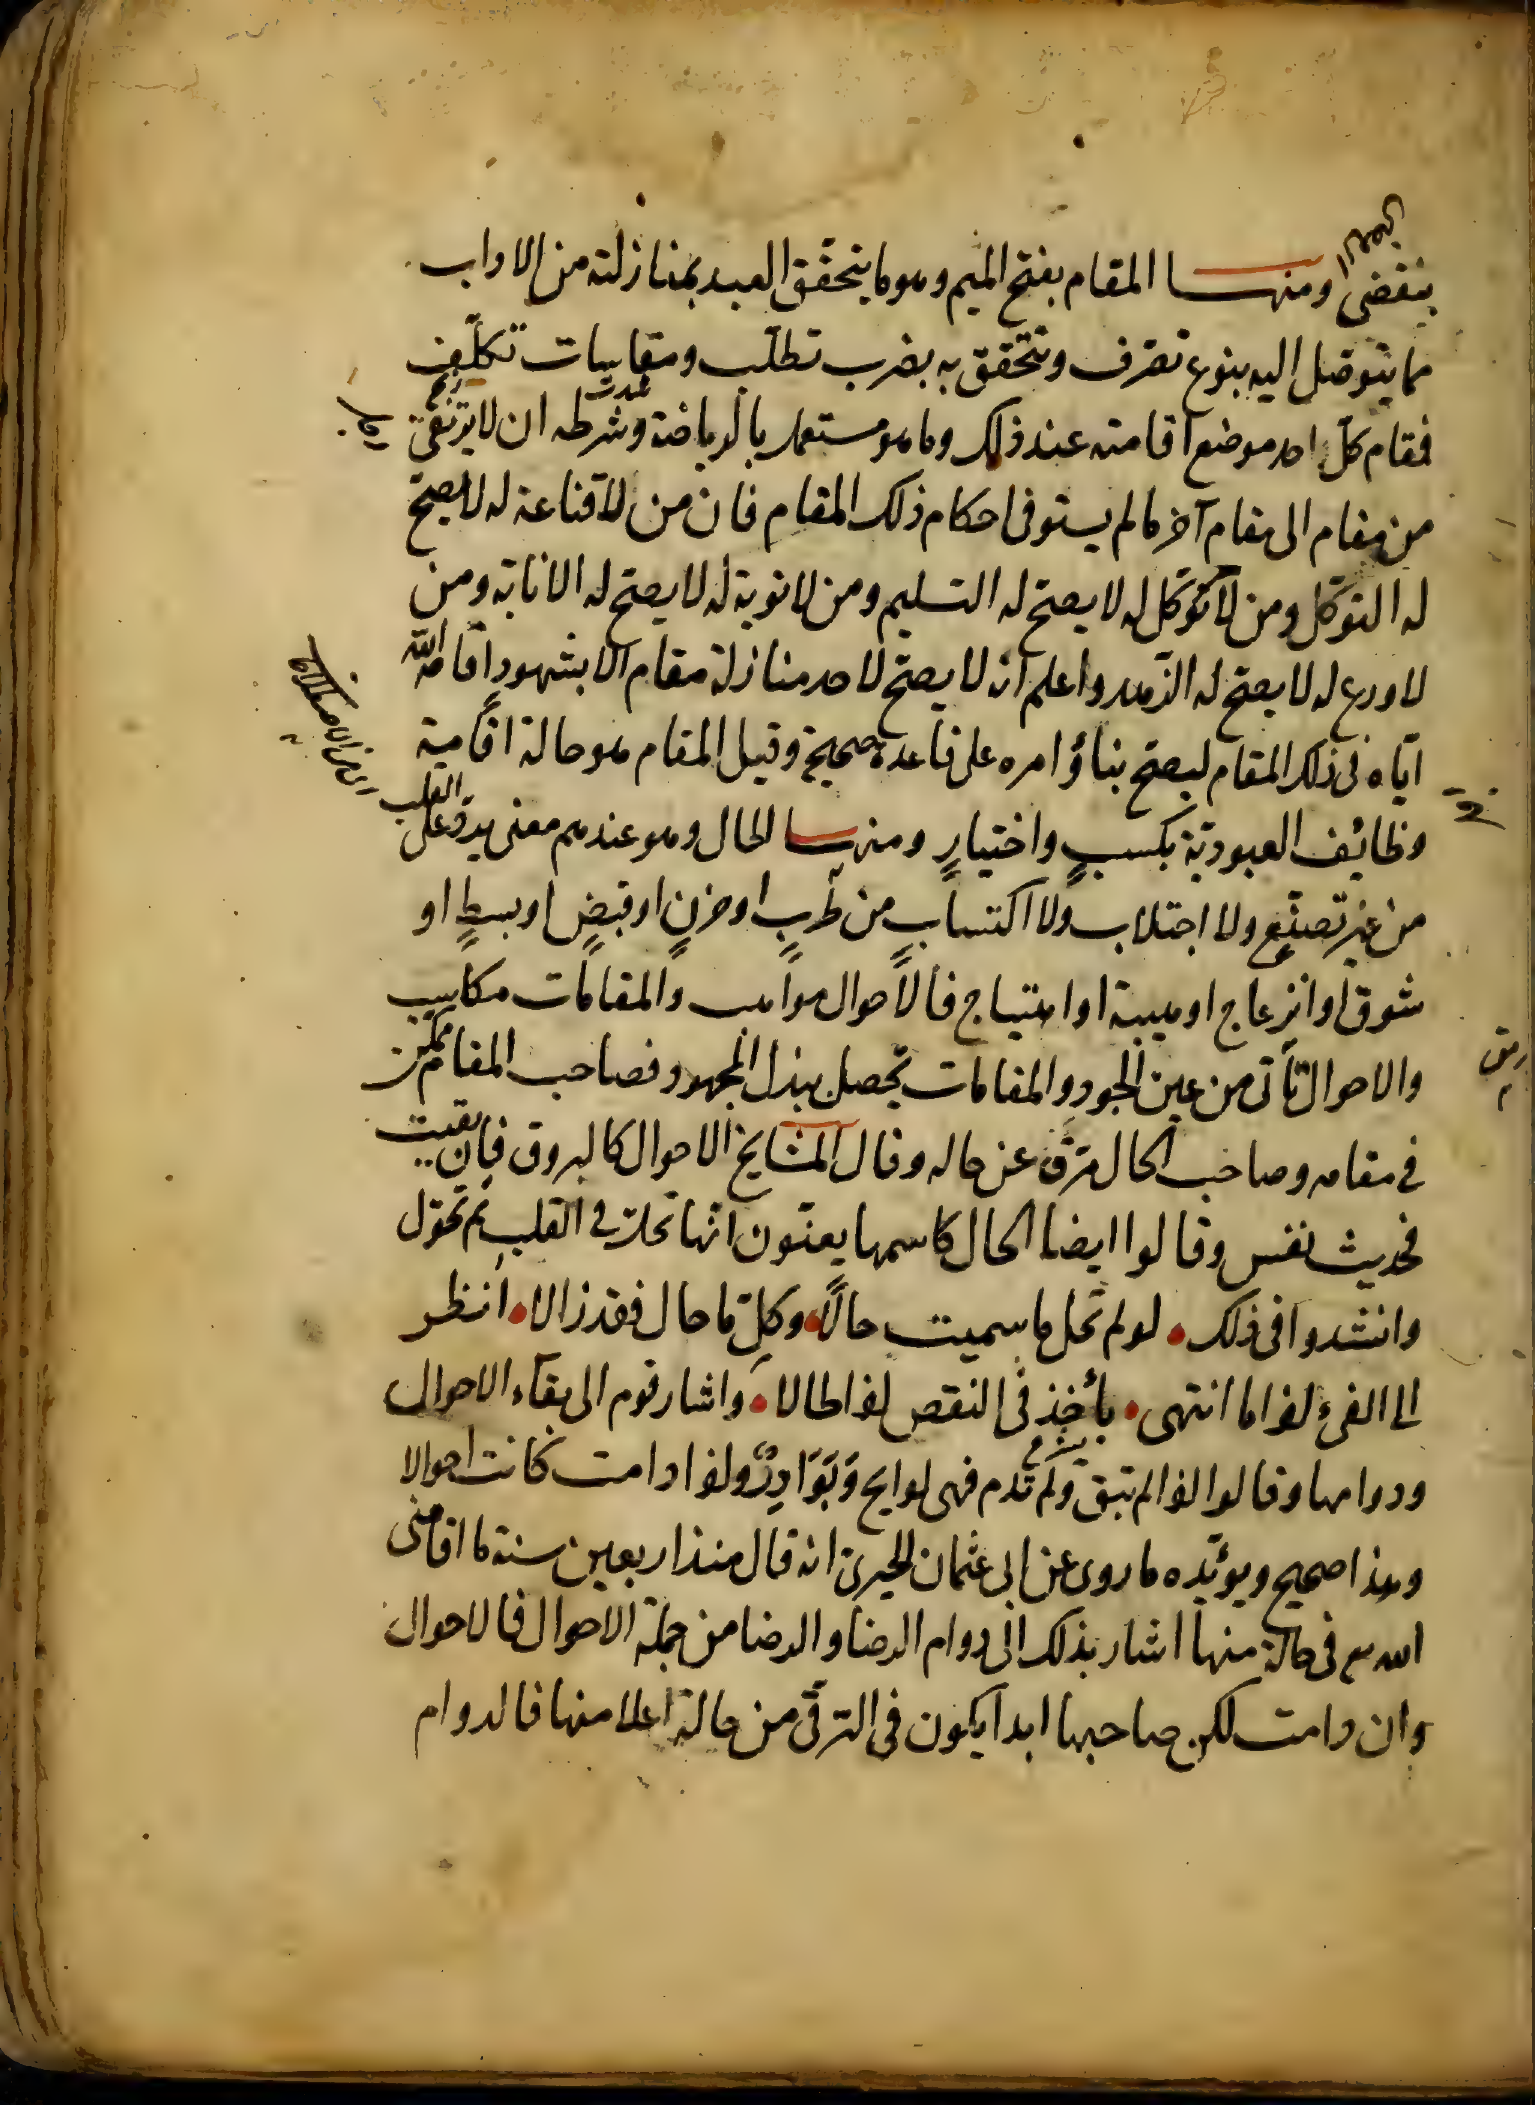 ينقضى ومنها المقام بفتح الميم وهو ما يتحقق العبد بمنازلته من الاداب
مما يتوصل اليه بنوع تصرف ويتحقق به بضرب تطلّب ومقاسات تكلّف
فمقام كلّ احد موضع اقامته عند ذلك وما هو مستعمل بالرياضة وشرطه ان لا يرتقى
من مقام الى مقام آخر ما لم يستوفى احكام ذلك المقام فان من لا قناعة له لا يصحّ
له التوكّل ومن لا توكّل له لا يصحّ له التسليم ومن لا توبة له لا يصحّ له الانابة ومن
لا ورع له لا يصحّ له الزّهد واعلم انه لا يصحّ لاحد منازلة مقام الا بشهود اقامة الله
ايّاه فى ذلك المقام ليصحّ بناؤ امره على قاعدة صحيحة وقيل المقام هو حالة اقامة
وظائف العبوديّة بكسبٍ واختيارٍ ومنها الحال وهو عندهم معنى يرد على القلب
من غير تصنّعٍ ولا اجتلاب ولا اكتسابٍ من طربٍ او حزنٍ او قبضٍ او بسطٍ او
شوق او انزعاج او هيبة او اهتياج فالاحوال مواهب والمقامات مكاسب
والاحوال تأتى من عين الجود والمقامات تحصل ببذل المجهود فصاحب المقام ممكّن
فى مقامه وصاحب الحال مترقّ عن حاله وقال المشايخ الاحوال كالبروق فان بقيت
فحديث نفس وقالوا ايضا الحال كاسمها يعنون انّها تحلّ فى القلب ثم تحوّل
وانشدوا فى ذلك • لو لم تحل ما سميت حالاً • وكلّ ما حال فقد زالا • انظر
الى الفئ اذا ما انتهى • يأخذ فى النقص اذا طالا • واشار قوم الى بقآء الاحوال
ودوامها وقالوا اذا لم تبق ولم تدم فهى لوايح وَبَوَادِرٌ واذا دامت كانت احوالا
وهذا صحيح ويؤيّده ما روى عن ابى عثمان الحيرى انه قال منذ اربعين سنة ما اقامنى
الله تع فى حالة منها اشار بذلك الى دوام الرضا والرضا من جملة الاحوال فالاحوال
وان دامت لكن صاحبها ابدا يكون فى الترقّى من حالة اعلا منها فالدوام